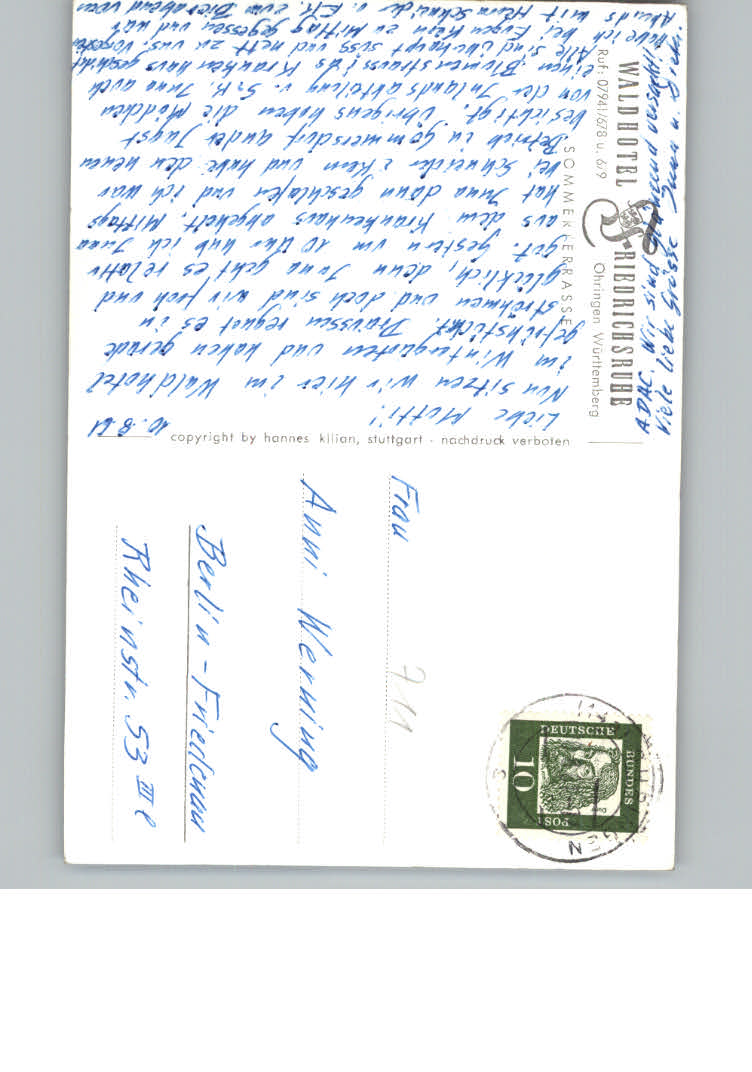 WALDHOTEL FRIEDRICHSRUHE
Ohringen Württemberg
Ruf: 07941/678 u. 679
SOMMERTERRASSE
10.8.61
Liebe Mutti!
Nun sitzen wir hier im Waldhotel
im Wintergarten und haben gerade
gefrühstückt. Draussen regnet es in
strömen und doch sind wir froh und
glücklich, denn Inna geht es relativ
gut. Gestern um 10 Uhr hab ich Inna
aus dem Krankenhaus abgeholt. Mittags
hat Inna dann geschlafen und ich war
bei Schneider & Klein und habe den neuen
Betrieb in Gommersdorf an der Jagst
besichtigt. Übrigens haben die Mädchen
von der Inlandsabteilung v. S&K. Inna auch
einen Blumenstrauss ins Krankenhaus geschickt
Alle sind überhaupt süss und nett zu uns. Vorgestern
habe ich bei Eugen Klein zu Mittag gegessen und war
Abends mit Herrn Schneider v. zum Bierabend vom
ADAC. Wir sind
Viele liebe Grüsse Inna u.
copyright by hannes kilian, stuttgart - nachdruck verboten
Frau
Anni Werning
Berlin-Friedenau
Rheinstr. 53 III l
711
DEUTSCHE
BUNDES
POST
10